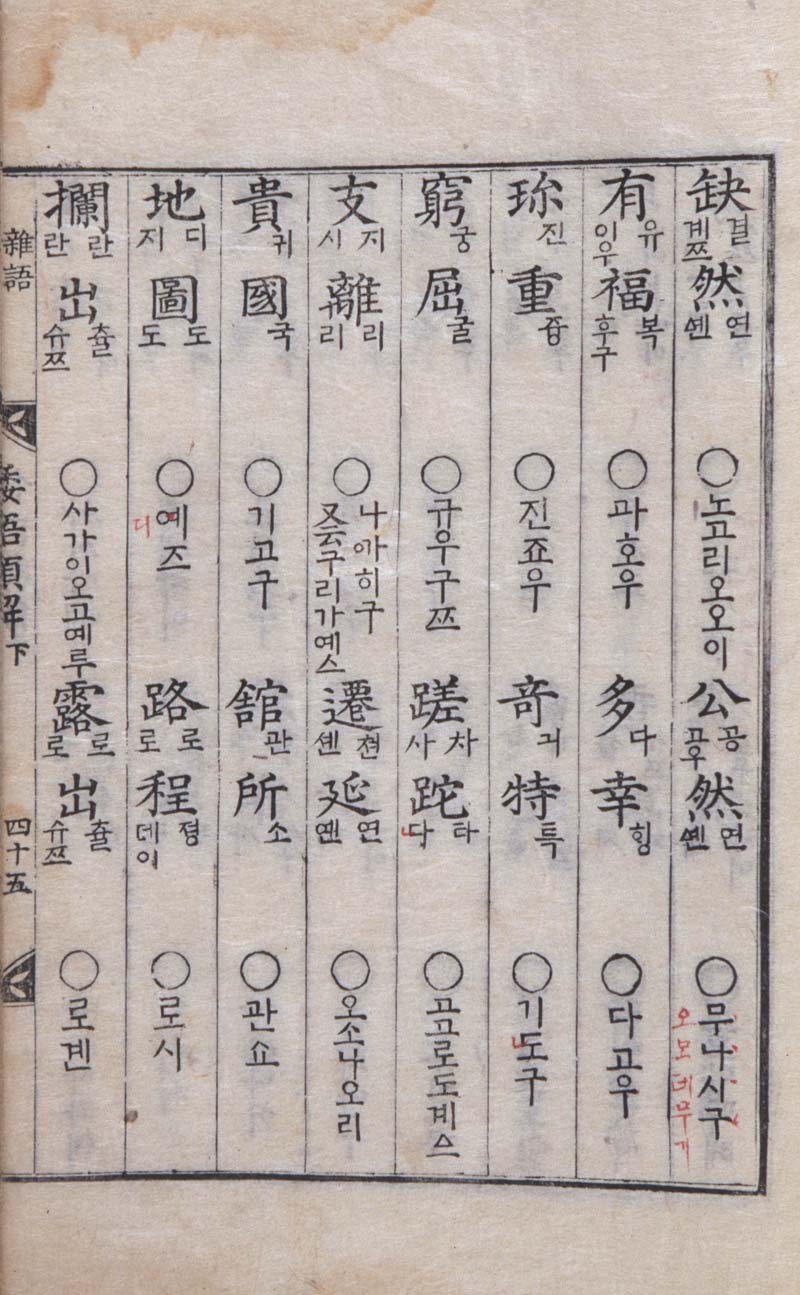 缺 결 계쯔 然 연 쎈 ○노고리오오이 公 공 고우 然 연 쎈 ○무나시구
有 유 이우 福 복 후구 ○과호우 多 다 幸 ᄒᆡᆼ ○다고우
珎 진 重 즁 ○진죠우 竒 긔 特 특 ○기도구
窮 궁 屈 굴 ○규우구쯔 蹉 차 사 跎 타 다 ○고고로도계스
支 지 시 離 리 리 ○나ᅁᅡ히구 又云구리가예스 遷 쳔 센 延 연 옌 ○오소나오리
貴 귀 國 국 ○기고구 舘 관 所 소 ○관쇼
地 디 지 圖 도 도 ○예즈 路 로 로 程 졍 데이 ○로시
欄 란 란 出 츌 슈쯔 ○사가이오고예루 露 로 로 出 츌 슈쯔 ○로겐
雜語 倭語類解下 四十五